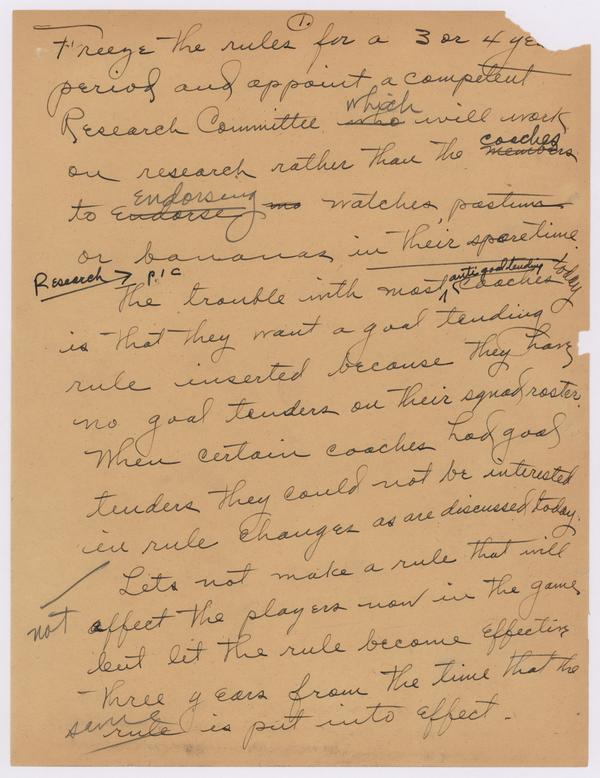 1.
Freeze the rules for a 3 or 4 ye
period and appoint a competent
Research Committee who which will work
on research rather than the members coaches
to endorse endorsing no watches, pastime
or bananas in their sparetime
Research → P.1C
The trouble with most antigoaltending coaches today
is that they want a goal tending
rule inserted because they have
no goal tenders on their squad roster.
When certain coaches had good
tenders they could not be interested
in rule changes as are discussed today.
Lets not make a rule that will
not affect the players now in the game
but let the rule become effective
three years from the time that the
same rule is put into effect.